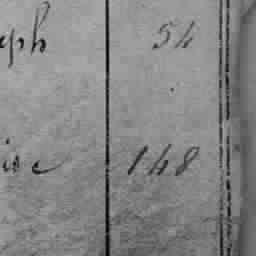 eph 54
ise 148